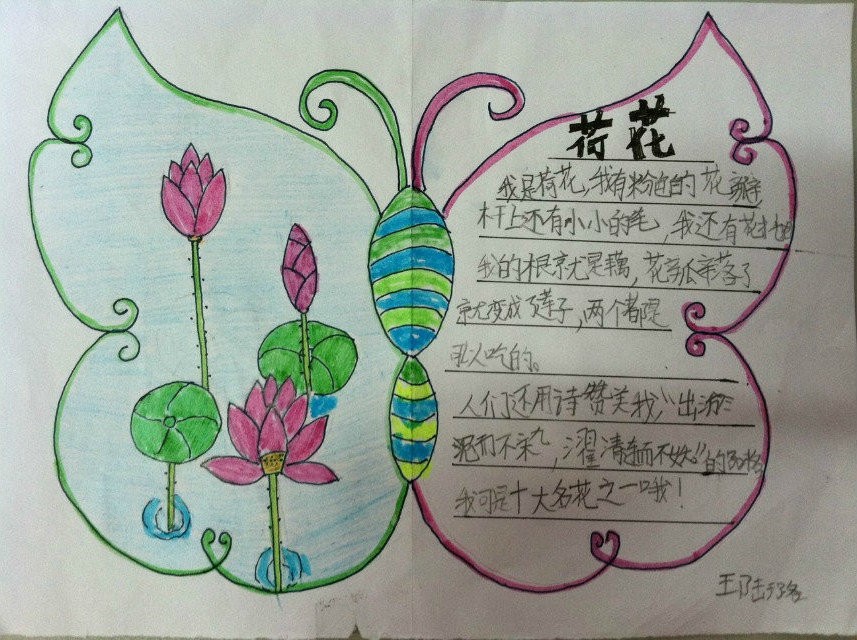 荷花
我是荷花,我有粉色的花瓣
杆上还有小小的毛,我还有花
我的根就是藕,花落了
就变成了莲子,两个都是
可以吃的。
人们还用诗赞美我,“出淤
泥而不染,濯清涟而不妖”的
我可是十大名花之一哦!
王